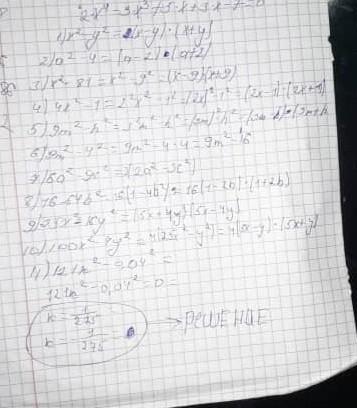 2x⁴-3x³+5·x+3x-7=0
1) x²-y²=(x-y)·(x+y)
2) a²-4=(a-2)·(a+2)
3) x²-81=x²-9²=(x-9)(x+9)
4) 4x²-1=2²x²-1²=(2x)²-1²=(2x-1)·(2x+1)
5) 9m²-h²=3²m²-h²=(3m)²-h²=(3m-h)·(3m+h
6) 9m²-4²=9m²-4·4=9m²-16
8) 16-64b²=16(1-4b²)=16(1-2b)·(1+2b)
9) 25x²-16y²=(5x+4y)(5x-4y)
10) 100x²-4y²=4(25x²-y²)=4(5x-y)·(5x+y)
11) 121k²-0,04²=
121k²-0,04²=0=
k=1/275
k=-1/275 → РЕШЕНИЕ